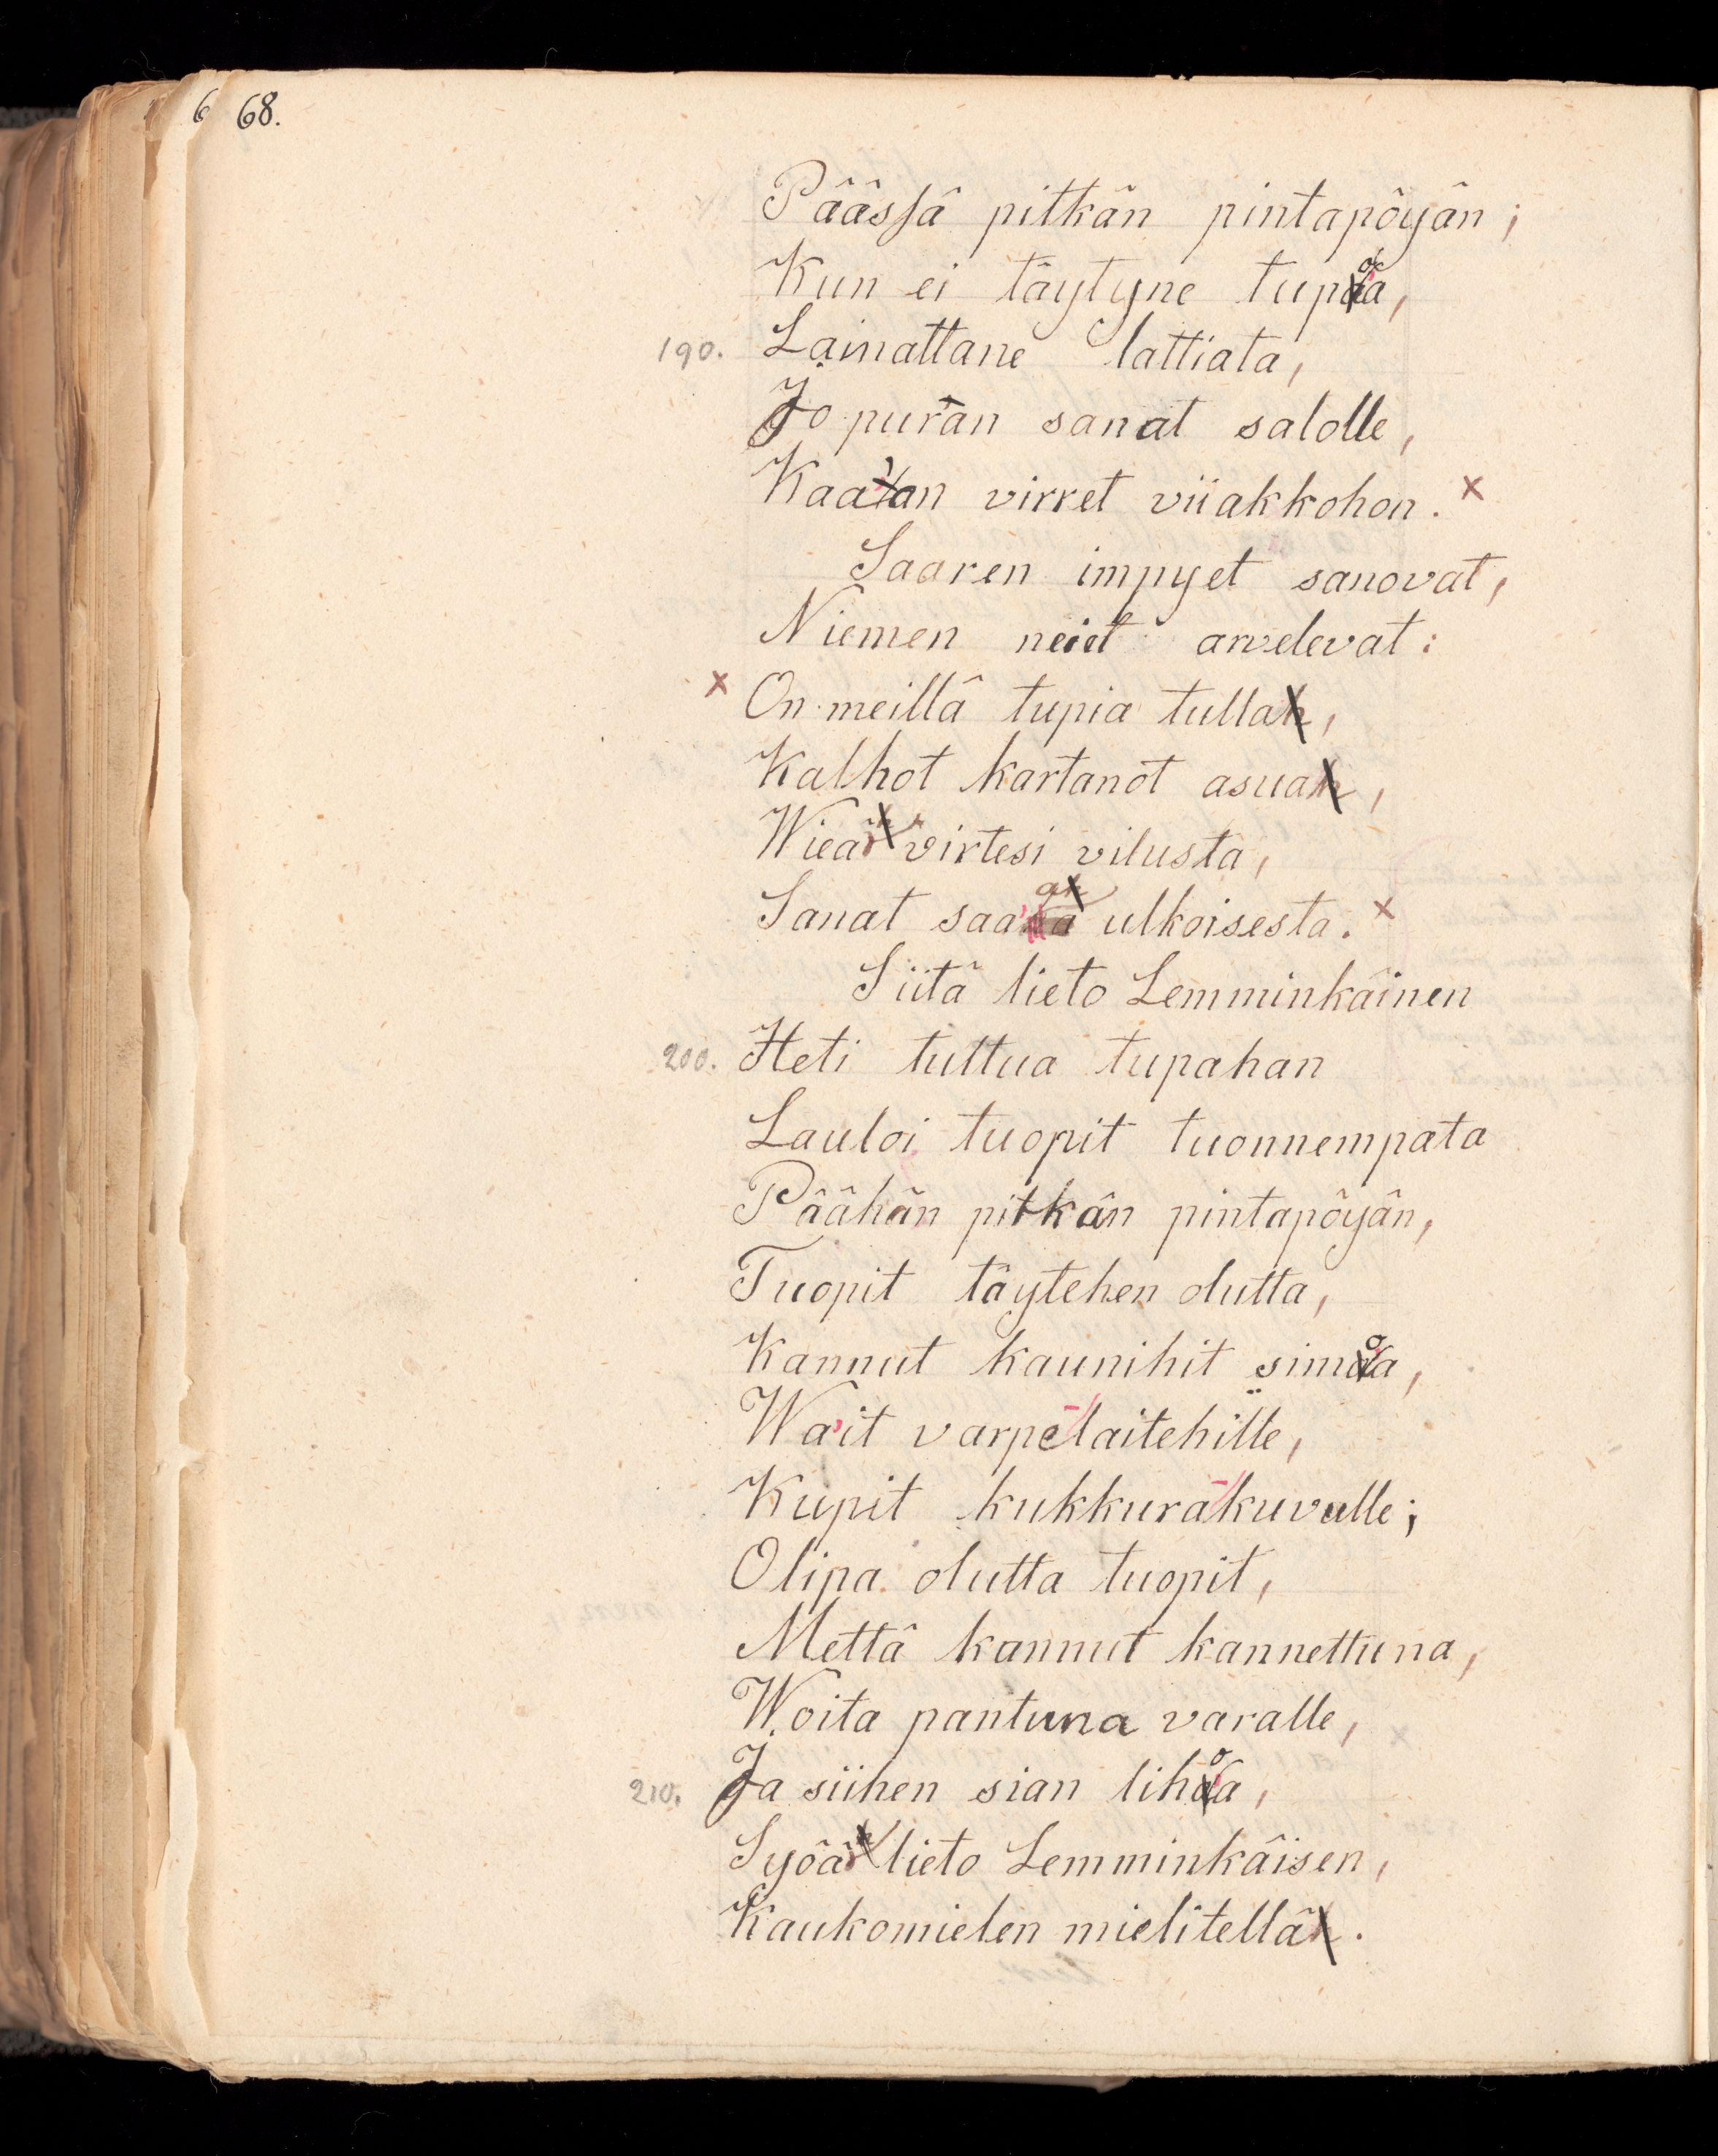 6 68.
Päässä pitkän pintapöyän;
Kun ei täytyne tupoa,
190. Lainattane lattiata,
Jo puran sanat salolle,
Kaa'an virret viiakkohon. ×
Saaren impyet sanovat,
Niemen neiet arvelevat:
× On meillä tupia tulla,
Kalhot kartanot asua,
Wieä virtesi vilusta,
Sanat saa'a ulkoisesta. ×
Siitä lieto Lemminkäinen
200. Heti tuttua tupahan
Lauloi tuopit tuonnempata
Päähän pitkän pintapöyän,
Tuopit täytehen olutta,
Kannut kaunihit simoa,
Wa'it varpe-laitehille,
Kupit kukkura-kuvulle;
Olipa olutta tuopit,
Mettä kannut kannettuna,
Woita pantuna varalle,
210. Ja siihen sian lihoa,
Syöä lieto Lemminkäisen,
Kaukomielen mielitellä.